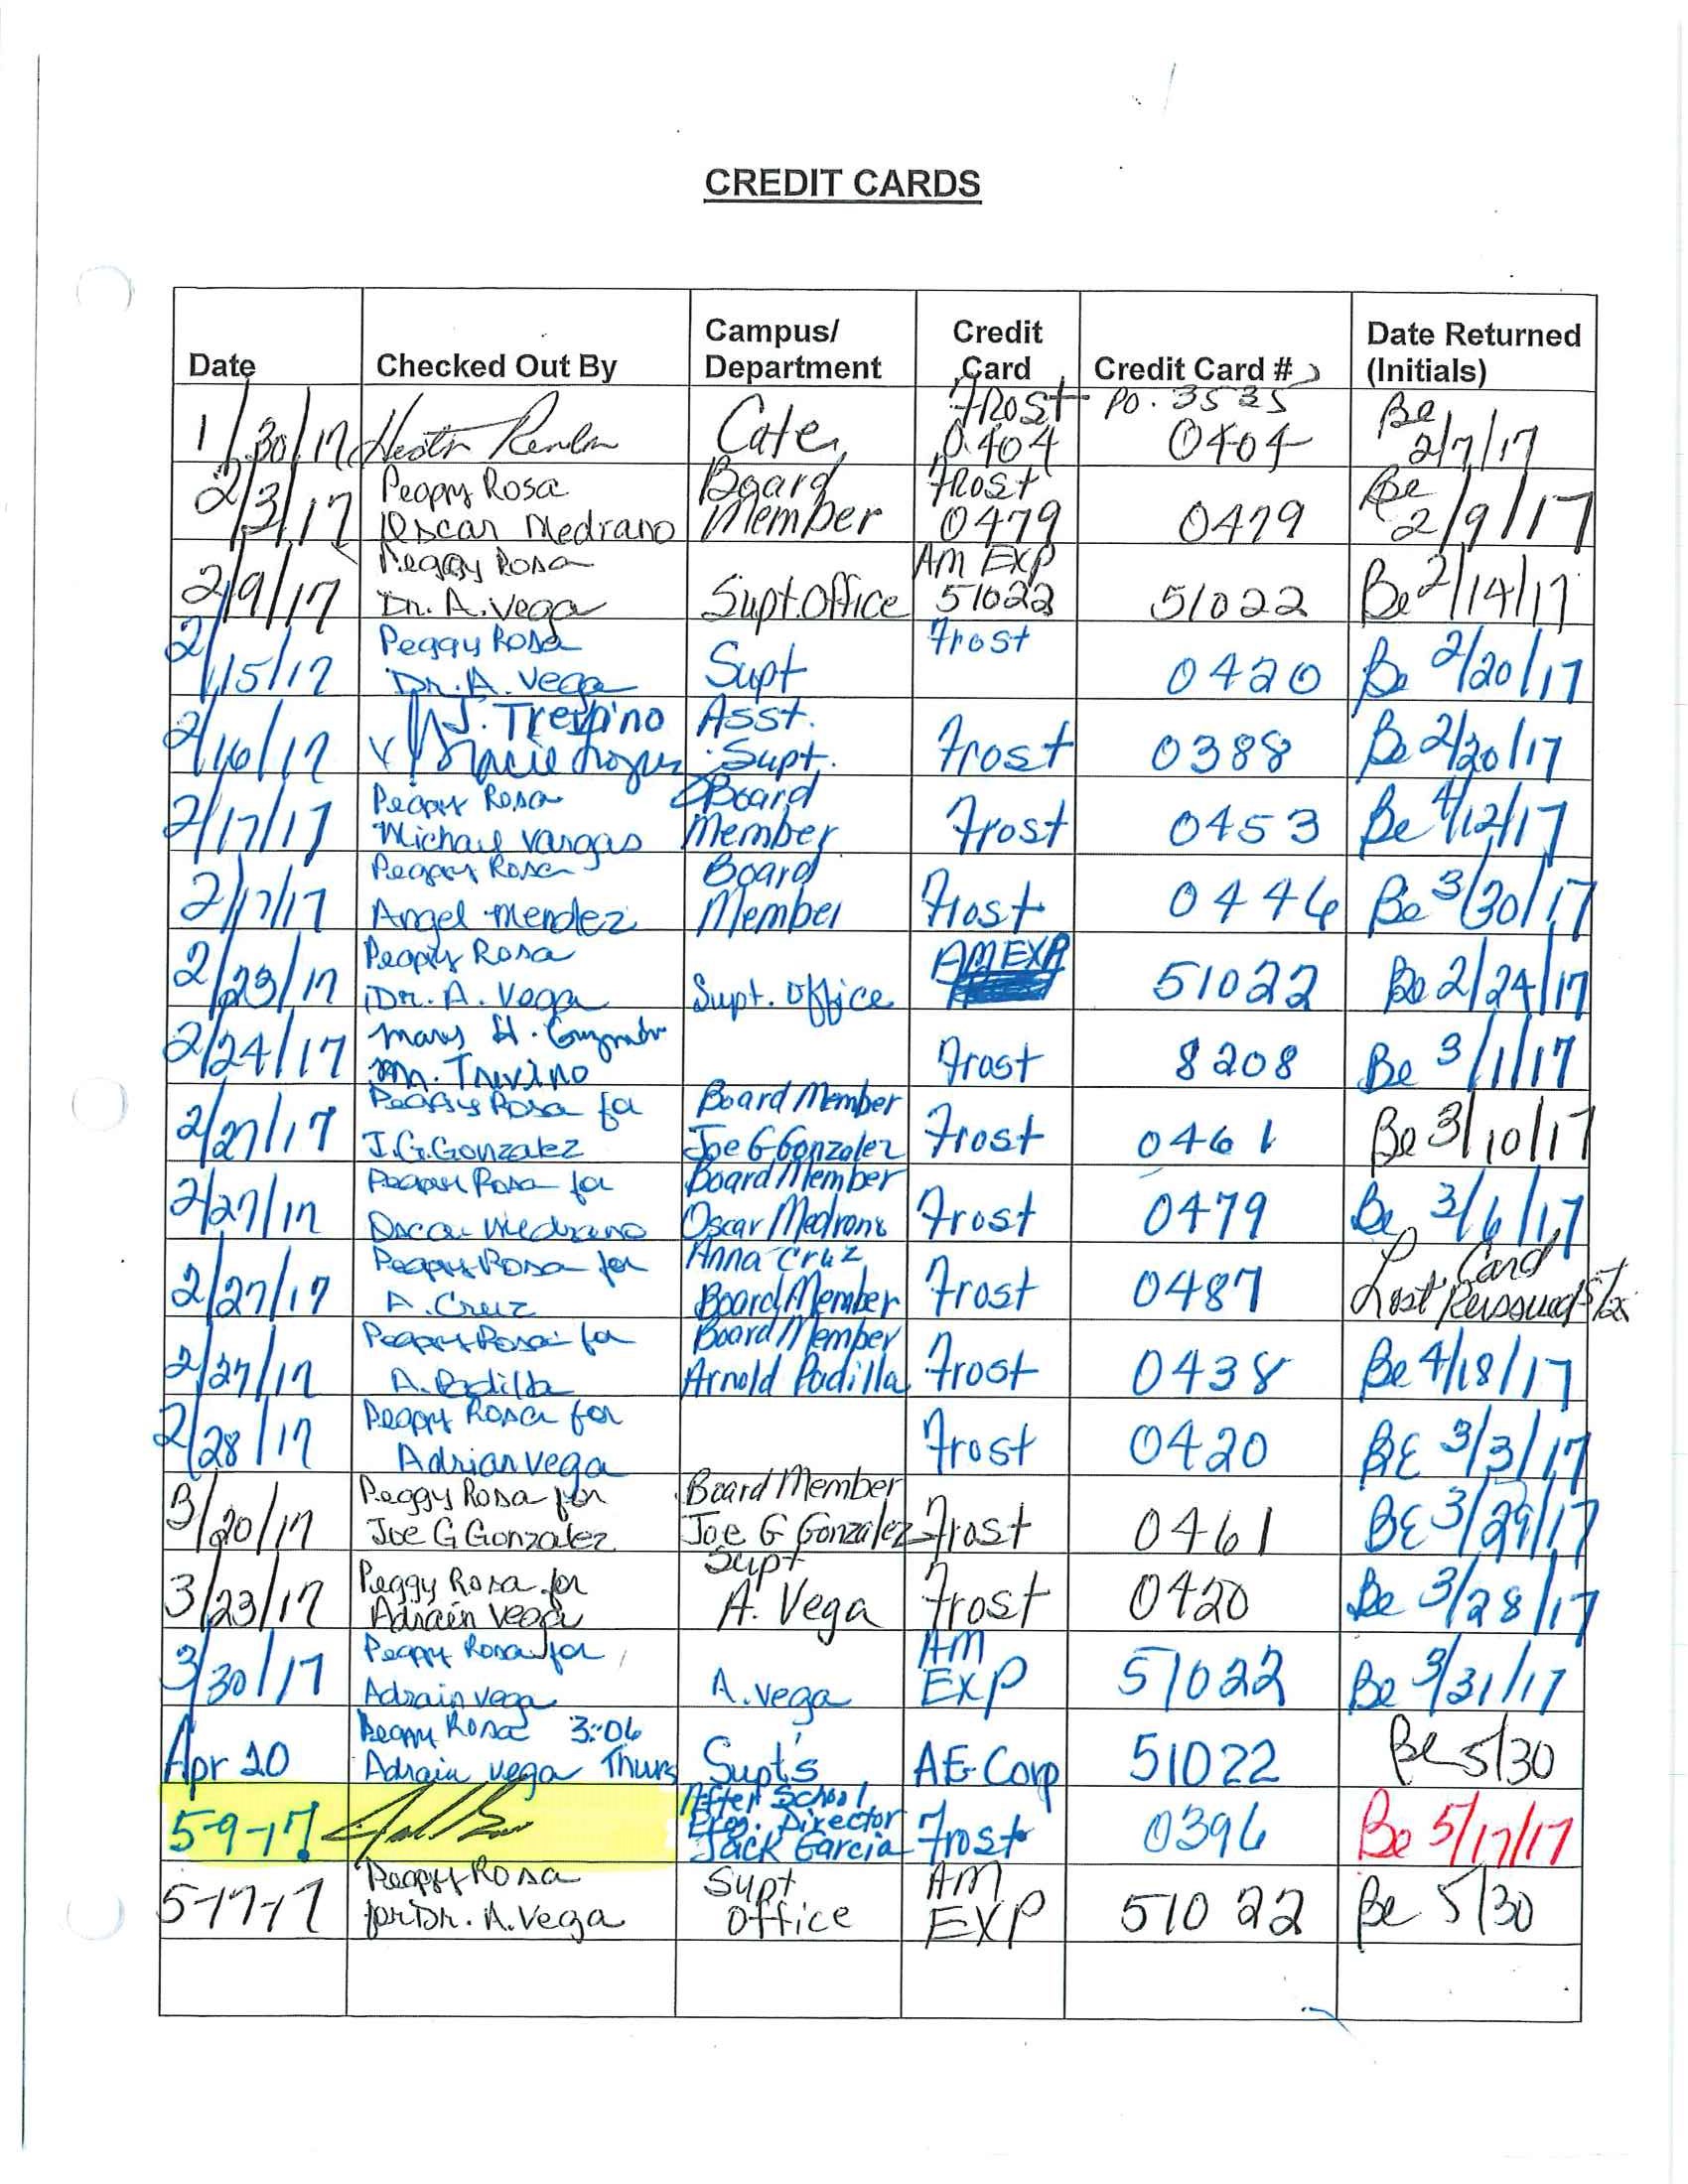 CREDIT CARDS
Date Checked Out By Campus/ Department Credit Card Credit Card # Date Returned (Initials)
1/30/17 Frost PO. 3535 Be
0404 0404 2/7/17
2/3/17 Peggy Rosa Board Frost Be
Oscar Medrano Member 0479 0479 2/9/17
2/9/17 Peggy Rosa AM EXP
Dr. A. Vega Supt. Office 51022 51022 Be 2/14/17
2/15/17 Peggy Rosa Frost
Dr. A. Vega Supt 0420 Be 2/20/17
2/16/17 J. Trevino Asst.
Supt. Frost 0388 Be 2/20/17
2/17/17 Peggy Rosa Board
Michael Vargas Member Frost 0453 Be 4/12/17
2/17/17 Peggy Rosa Board
Angel Mendez Member Frost 0446 Be 3/30/17
2/23/17 Peggy Rosa AM EXP
Dr. A. Vega Supt. Office 51022 Be 2/24/17
2/24/17 Mary H.
M. Trevino Frost 8208 Be 3/1/17
2/27/17 Peggy Rosa for Board Member
J.G. Gonzalez Joe G Gonzalez Frost 0461 Be 3/10/17
2/27/17 Peggy Rosa for Board Member
Oscar Medrano Oscar Medrano Frost 0479 Be 3/6/17
2/27/17 Peggy Rosa for Anna Cruz Card
A. Cruz Board Member Frost 0487 Lost Reissued
2/27/17 Peggy Rosa for Board Member
A. Padilla Arnold Padilla Frost 0438 Be 4/18/17
2/28/17 Peggy Rosa for
Adrian Vega Frost 0420 BE 3/3/17
3/20/17 Peggy Rosa for Board Member
Joe G Gonzalez Joe G Gonzalez Frost 0461 BE 3/29/17
3/23/17 Peggy Rosa for Supt
Adrain Vega A. Vega Frost 0420 Be 3/28/17
3/30/17 Peggy Rosa for AM
Adrain Vega A. Vega EXP 51022 Be 3/31/17
Apr 20 Peggy Rosa 3:06
Adrain Vega Thurs Supt's AE Corp 51022 Be 5/30
5-9-17 After School
Prog. Director
Jack Garcia Frost 0396 Be 5/17/17
5-17-17 Peggy Rosa Supt. AM
for Dr. A. Vega Office EXP 51022 Be 5/30